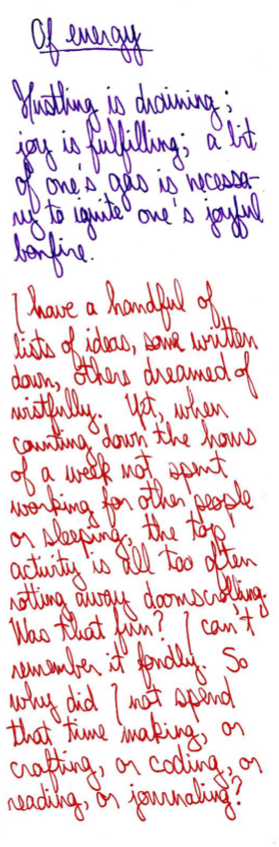 Of energy
Hustling is draining;
joy is fulfilling; a bit
of one's gas is necessa-
ry to ignite one's joyful
bonfire.
I have a handful of
lists of ideas, some written
down, others dreamed of
wistfully. Yet, when
counting down the hours
of a week not spent
working for other people
or sleeping, the top
activity is all too often
rotting away doomscrolling.
Was that fun? I can't
remember it fondly. So
why did I not spend
that time making, or
crafting, or coding, or
reading, or journaling?